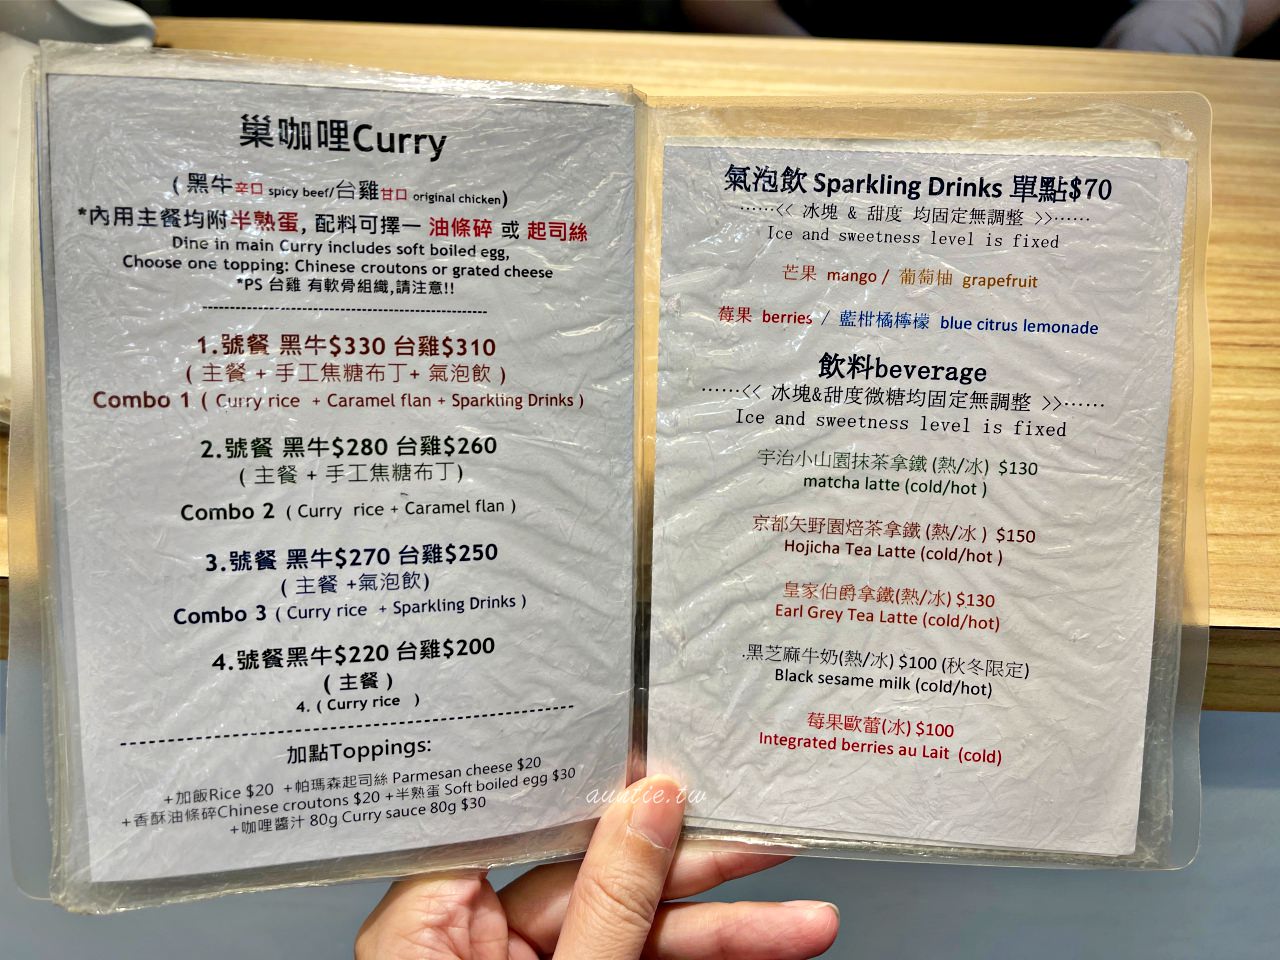 巢咖哩Curry
( 黑牛辛口 spicy beef/台雞甘口 original chicken)
*內用主餐均附半熟蛋, 配料可擇一 油條碎 或 起司絲
Dine in main Curry includes soft boiled egg,
Choose one topping: Chinese croutons or grated cheese
*PS 台雞 有軟骨組織,請注意!!
1.號餐 黑牛$330 台雞$310
( 主餐 + 手工焦糖布丁+ 氣泡飲 )
Combo 1 ( Curry rice + Caramel flan + Sparkling Drinks )
2.號餐 黑牛$280 台雞$260
( 主餐 + 手工焦糖布丁)
Combo 2 ( Curry rice + Caramel flan )
3.號餐 黑牛$270 台雞$250
( 主餐 +氣泡飲)
Combo 3 ( Curry rice + Sparkling Drinks )
4.號餐黑牛$220 台雞$200
( 主餐 )
4. ( Curry rice )
加點Toppings:
+加飯Rice $20 +帕瑪森起司絲 Parmesan cheese $20
+香酥油條碎Chinese croutons $20 +半熟蛋 Soft boiled egg $30
+咖哩醬汁 80g Curry sauce 80g $30
氣泡飲 Sparkling Drinks 單點$70
······<< 冰塊 & 甜度 均固定無調整 >>······
Ice and sweetness level is fixed
芒果 mango / 葡萄柚 grapefruit
莓果 berries / 藍柑橘檸檬 blue citrus lemonade
飲料beverage
······<< 冰塊&甜度微糖均固定無調整 >>······
Ice and sweetness level is fixed
宇治小山園抹茶拿鐵 (熱/冰) $130
matcha latte (cold/hot )
京都矢野園焙茶拿鐵 (熱/冰 ) $150
Hojicha Tea Latte (cold/hot )
皇家伯爵拿鐵(熱/冰) $130
Earl Grey Tea Latte (cold/hot)
.黑芝麻牛奶(熱/冰) $100 (秋冬限定)
Black sesame milk (cold/hot)
莓果歐蕾(冰) $100
Integrated berries au Lait (cold)
auntie.tw